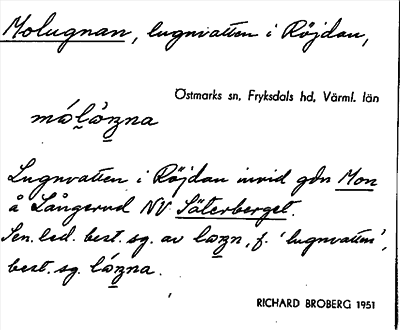 Molugnan, lugnvatten i Röjdan,
Östmarks sn, Fryksdals hd, Värml. län
Lugnvatten i Röjdan invid gdn Mon
å Långerud NV Säterberget.
Sen. led. best. sg. av f. 'lugnvatten',
best. sg.
RICHARD BROBERG 1951